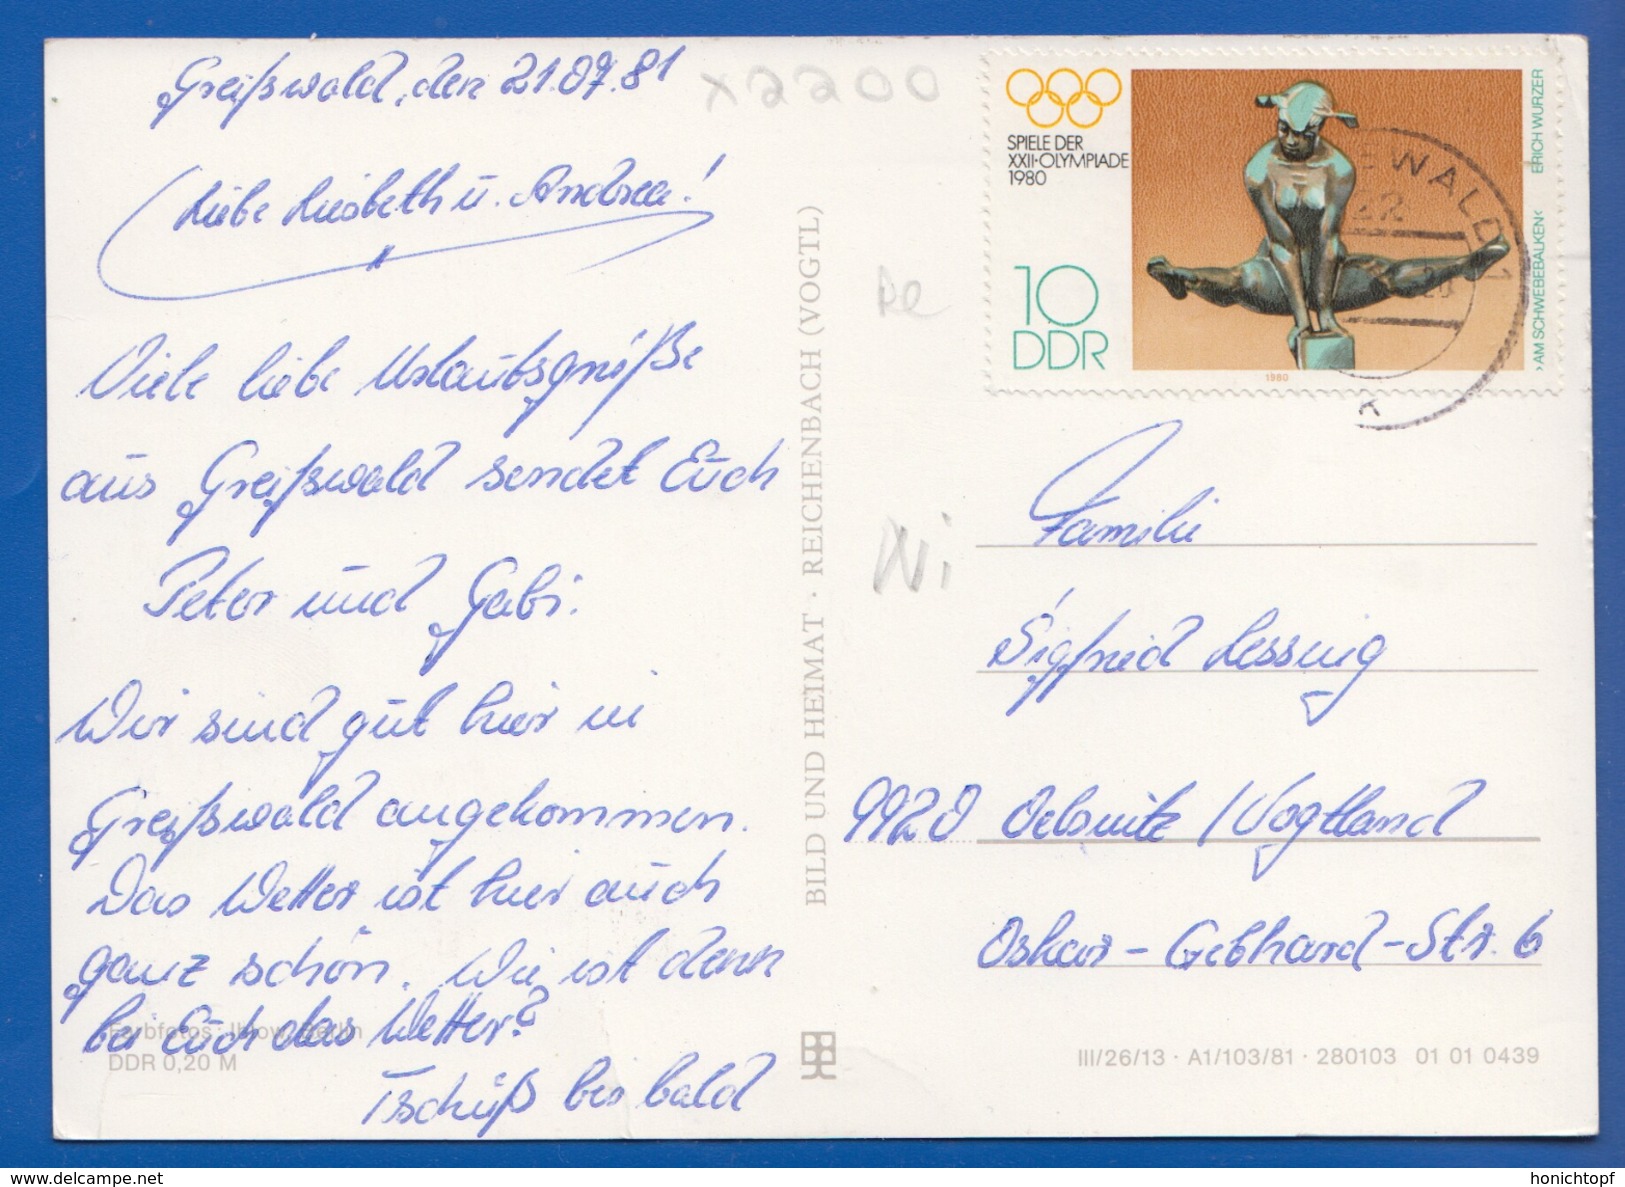 Greifswald, den 21.07.81
Liebe Liesbeth u. Andrea!
Viele liebe Urlaubsgrüße
aus Greifswald sendet Euch
Peter und Gabi.
Wir sind gut hier in
Greifswald angekommen.
Das Wetter ist hier auch
ganz schön. Wie ist denn
bei Euch das Wetter?
Tschüß bis bald
Farbfotos: Ihlow, Berlin
DDR 0,20 M
BILD UND HEIMAT · REICHENBACH (VOGTL)
x2200
SPIELE DER
XXII·OLYMPIADE
1980
10
DDR
1980
ERICH WURZER
›AM SCHWEBEBALKEN‹
EWALD 1
22
Familie
Sigfried Lessing
9920 Oelsnitz / Vogtland
Oskar-Gebhard-Str. 6
III/26/13 · A1/103/81 · 280103 01 01 0439
www.delcampe.net
honichtopf